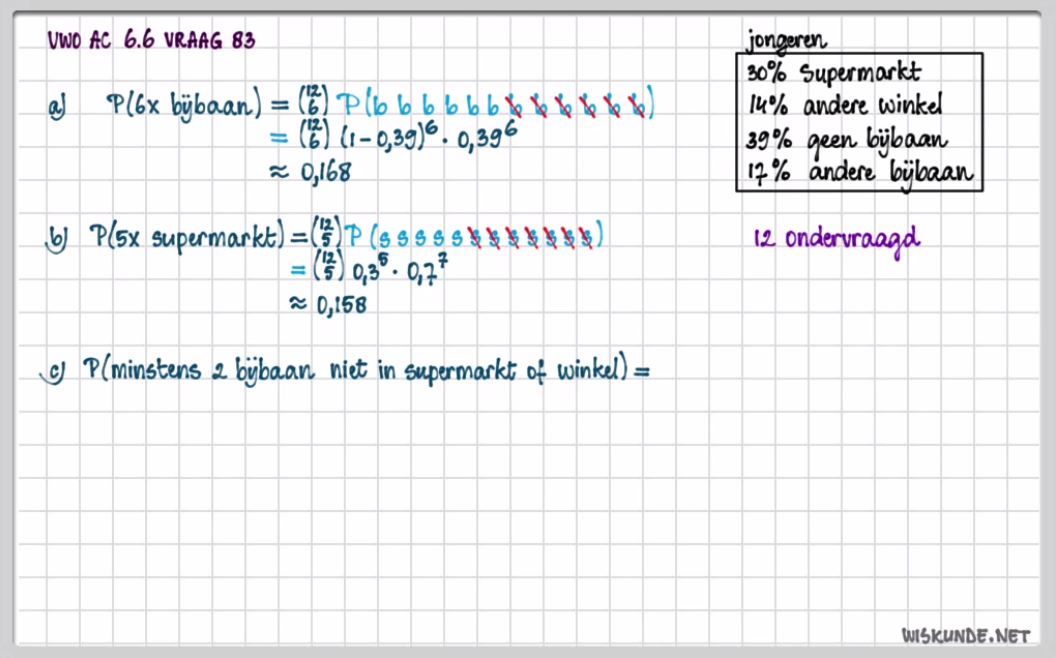 VWO AC 6.6 VRAAG 83
jongeren
30% Supermarkt
14% andere winkel
39% geen bijbaan
17% andere bijbaan
12 ondervraagd
a) P(6x bijbaan) = (12 6) P(b b b b b b b̸ b̸ b̸ b̸ b̸ b̸)
= (12 6) (1-0,39)⁶ · 0,39⁶
≈ 0,168
b) P(5x supermarkt) = (12 5) P (s s s s s s̸ s̸ s̸ s̸ s̸ s̸ s̸)
= (12 5) 0,3⁵ · 0,7⁷
≈ 0,158
c) P(minstens 2 bijbaan niet in supermarkt of winkel) =
WISKUNDE.NET